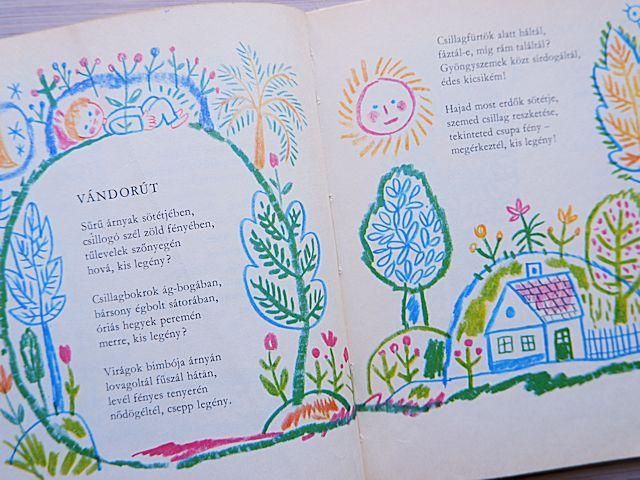 VÁNDORÚT
Sűrű árnyak sötétjében,
csillogó szél zöld fényében,
tűlevelek szőnyegén
hová, kis legény?
Csillagbokrok ág-bogában,
bársony égbolt sátorában,
óriás hegyek peremén
merre, kis legény?
Virágok bimbója árnyán
lovagoltál fűszál hátán,
levél fényes tenyerén
nődögéltél, csepp legény.
Csillagfürtök alatt háltál,
fáztál-e, míg rám találtál?
Gyöngyszemek közt sírdogáltál,
édes kicsikém!
Hajad most erdők sötétje,
szemed csillag reszketése,
tekinteted csupa fény –
megérkeztél, kis legény!